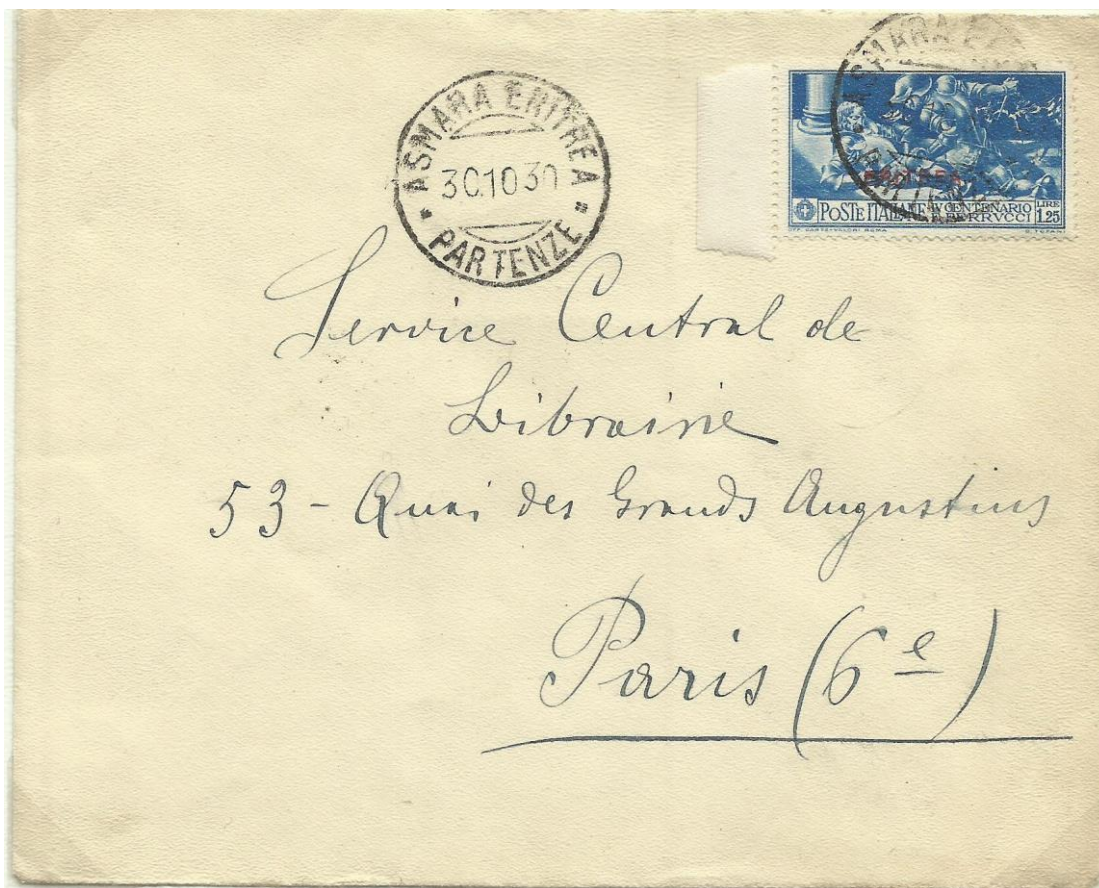 ASMARA ERITREA
30 10 30
PARTENZE
ASMARA
ERITREA
POSTE ITALIANE IV CENTENARIO
F. FERRVCCI
LIRE
1,25
Service Central de
Librairie
53 - Quai des Grands Augustins
Paris (6e)